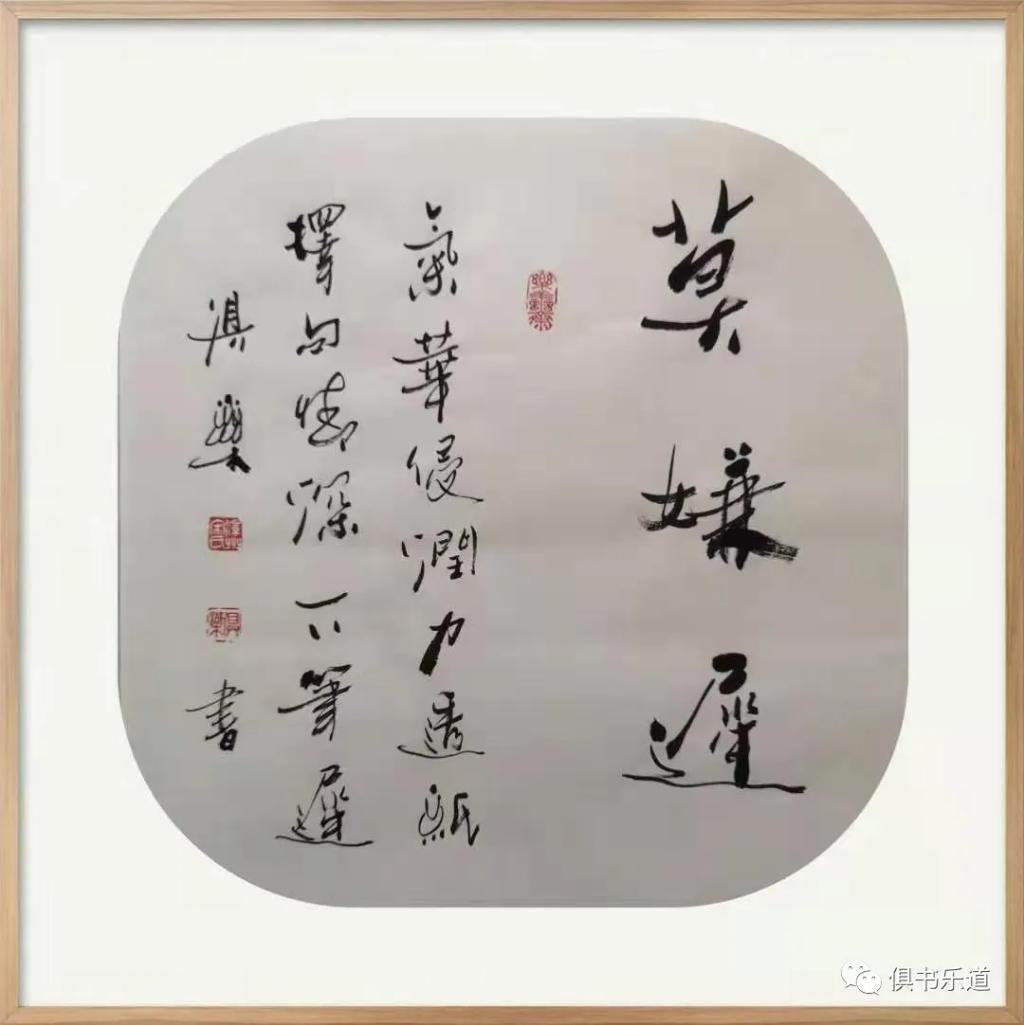 莫嫌遲
氣華侵潤力透紙
擇句情深下筆遲
俱樂
書
俱书乐道